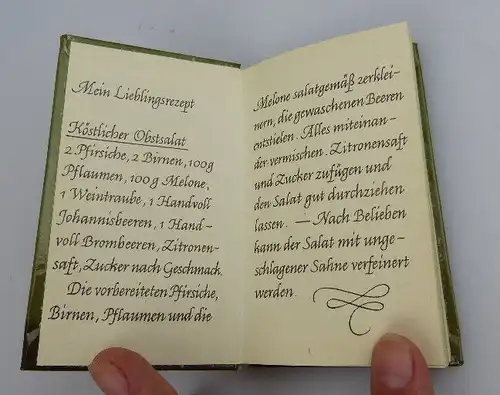 Mein Lieblingsrezept
Köstlicher Obstsalat
2 Pfirsiche, 2 Birnen, 100g
Pflaumen, 100 g Melone,
1 Weintraube, 1 Handvoll
Johannisbeeren, 1 Hand-
voll Brombeeren, Zitronen-
saft, Zucker nach Geschmack.
Die vorbereiteten Pfirsiche,
Birnen, Pflaumen und die
Melone salatgemäß zerklei-
nern, die gewaschenen Beeren
entstielen. Alles miteinan-
der vermischen. Zitronensaft
und Zucker zufügen und
den Salat gut durchziehen
lassen. — Nach Belieben
kann der Salat mit unge-
schlagener Sahne verfeinert
werden.